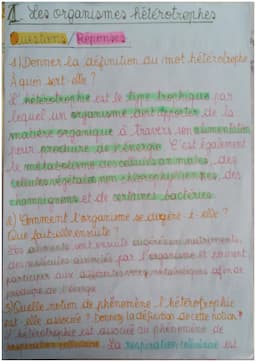 1. Les organismes hétérotrophes
Questions / Réponses
1) Donner la définition du mot hétérotrophe
À quoi sert-elle ?
L'hétérotrophie est le type trophique par
lequel un organisme doit apporter de la
matière organique à travers son alimentation
pour produire de l'énergie. C'est également
le métabolisme des cellules animales, des
cellules végétales non chlorophylliennes, des
champignons et de certaines bactéries.
2) Comment l'organisme se digère-t-elle ?
Que fait-elle ensuite ?
Les aliments sont ensuite digérés en nutriments,
des molécules absorbées par l'organisme et peuvent
participer aux différentes voies métaboliques afin de
produire de l'énergie
3) Quelle notion de phénomène l'hétérotrophie
est-elle associée ? Donnez la définition de cette notion ?
L'hétérotrophie est associée au phénomène de
respiration cellulaire. La respiration cellulaire est